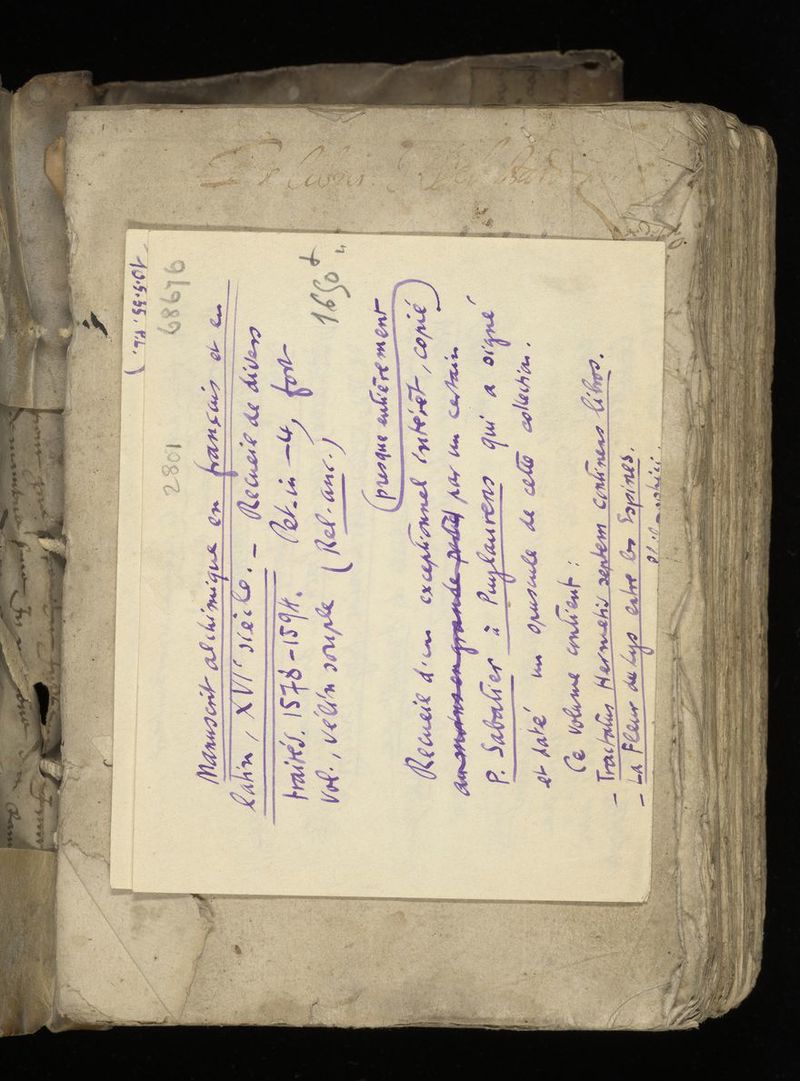 Ex Libris
(10.5.55. P.b.)
2801 68676
Manuscrit alchimique en français et en
latin, XVIe siècle. – Recueil de divers
traités. 1578-1594. Pet. in-4, fort
vol., vélin souple (Rel. anc.)
1650
(presque entièrement
Recueil d'un exceptionnel intérêt, copié)
au moins en grande partie par un certain
P. Sabatier à Puylaurens qui a signé
et daté un opuscule de cette collection.
Ce volume contient :
– Tractatus Hermetis septem continens libros.
– La Fleur de Lys entre les Espines.